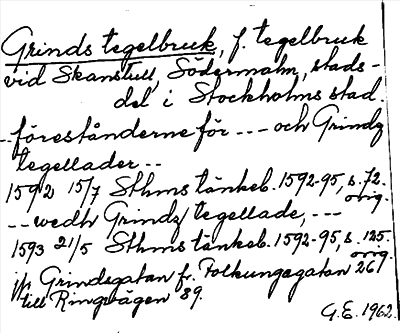 Grinds tegelbruk, f. tegelbruk
vid Skanstull, Södermalm, stads-
del i Stockholms stad.
-- förestånderne för --- och Grindz
tegellader --
1592 15/7 Sthms tänkeb. 1592-95, s. 72.
orig.
-- wedh Grindz tegellade, ---
1593 21/5 Sthms tänkeb. 1592-95, s. 125.
orig.
jfr Grindsgatan fr. Folkungagatan 26
till Ringvägen 89.
G.E. 1962.